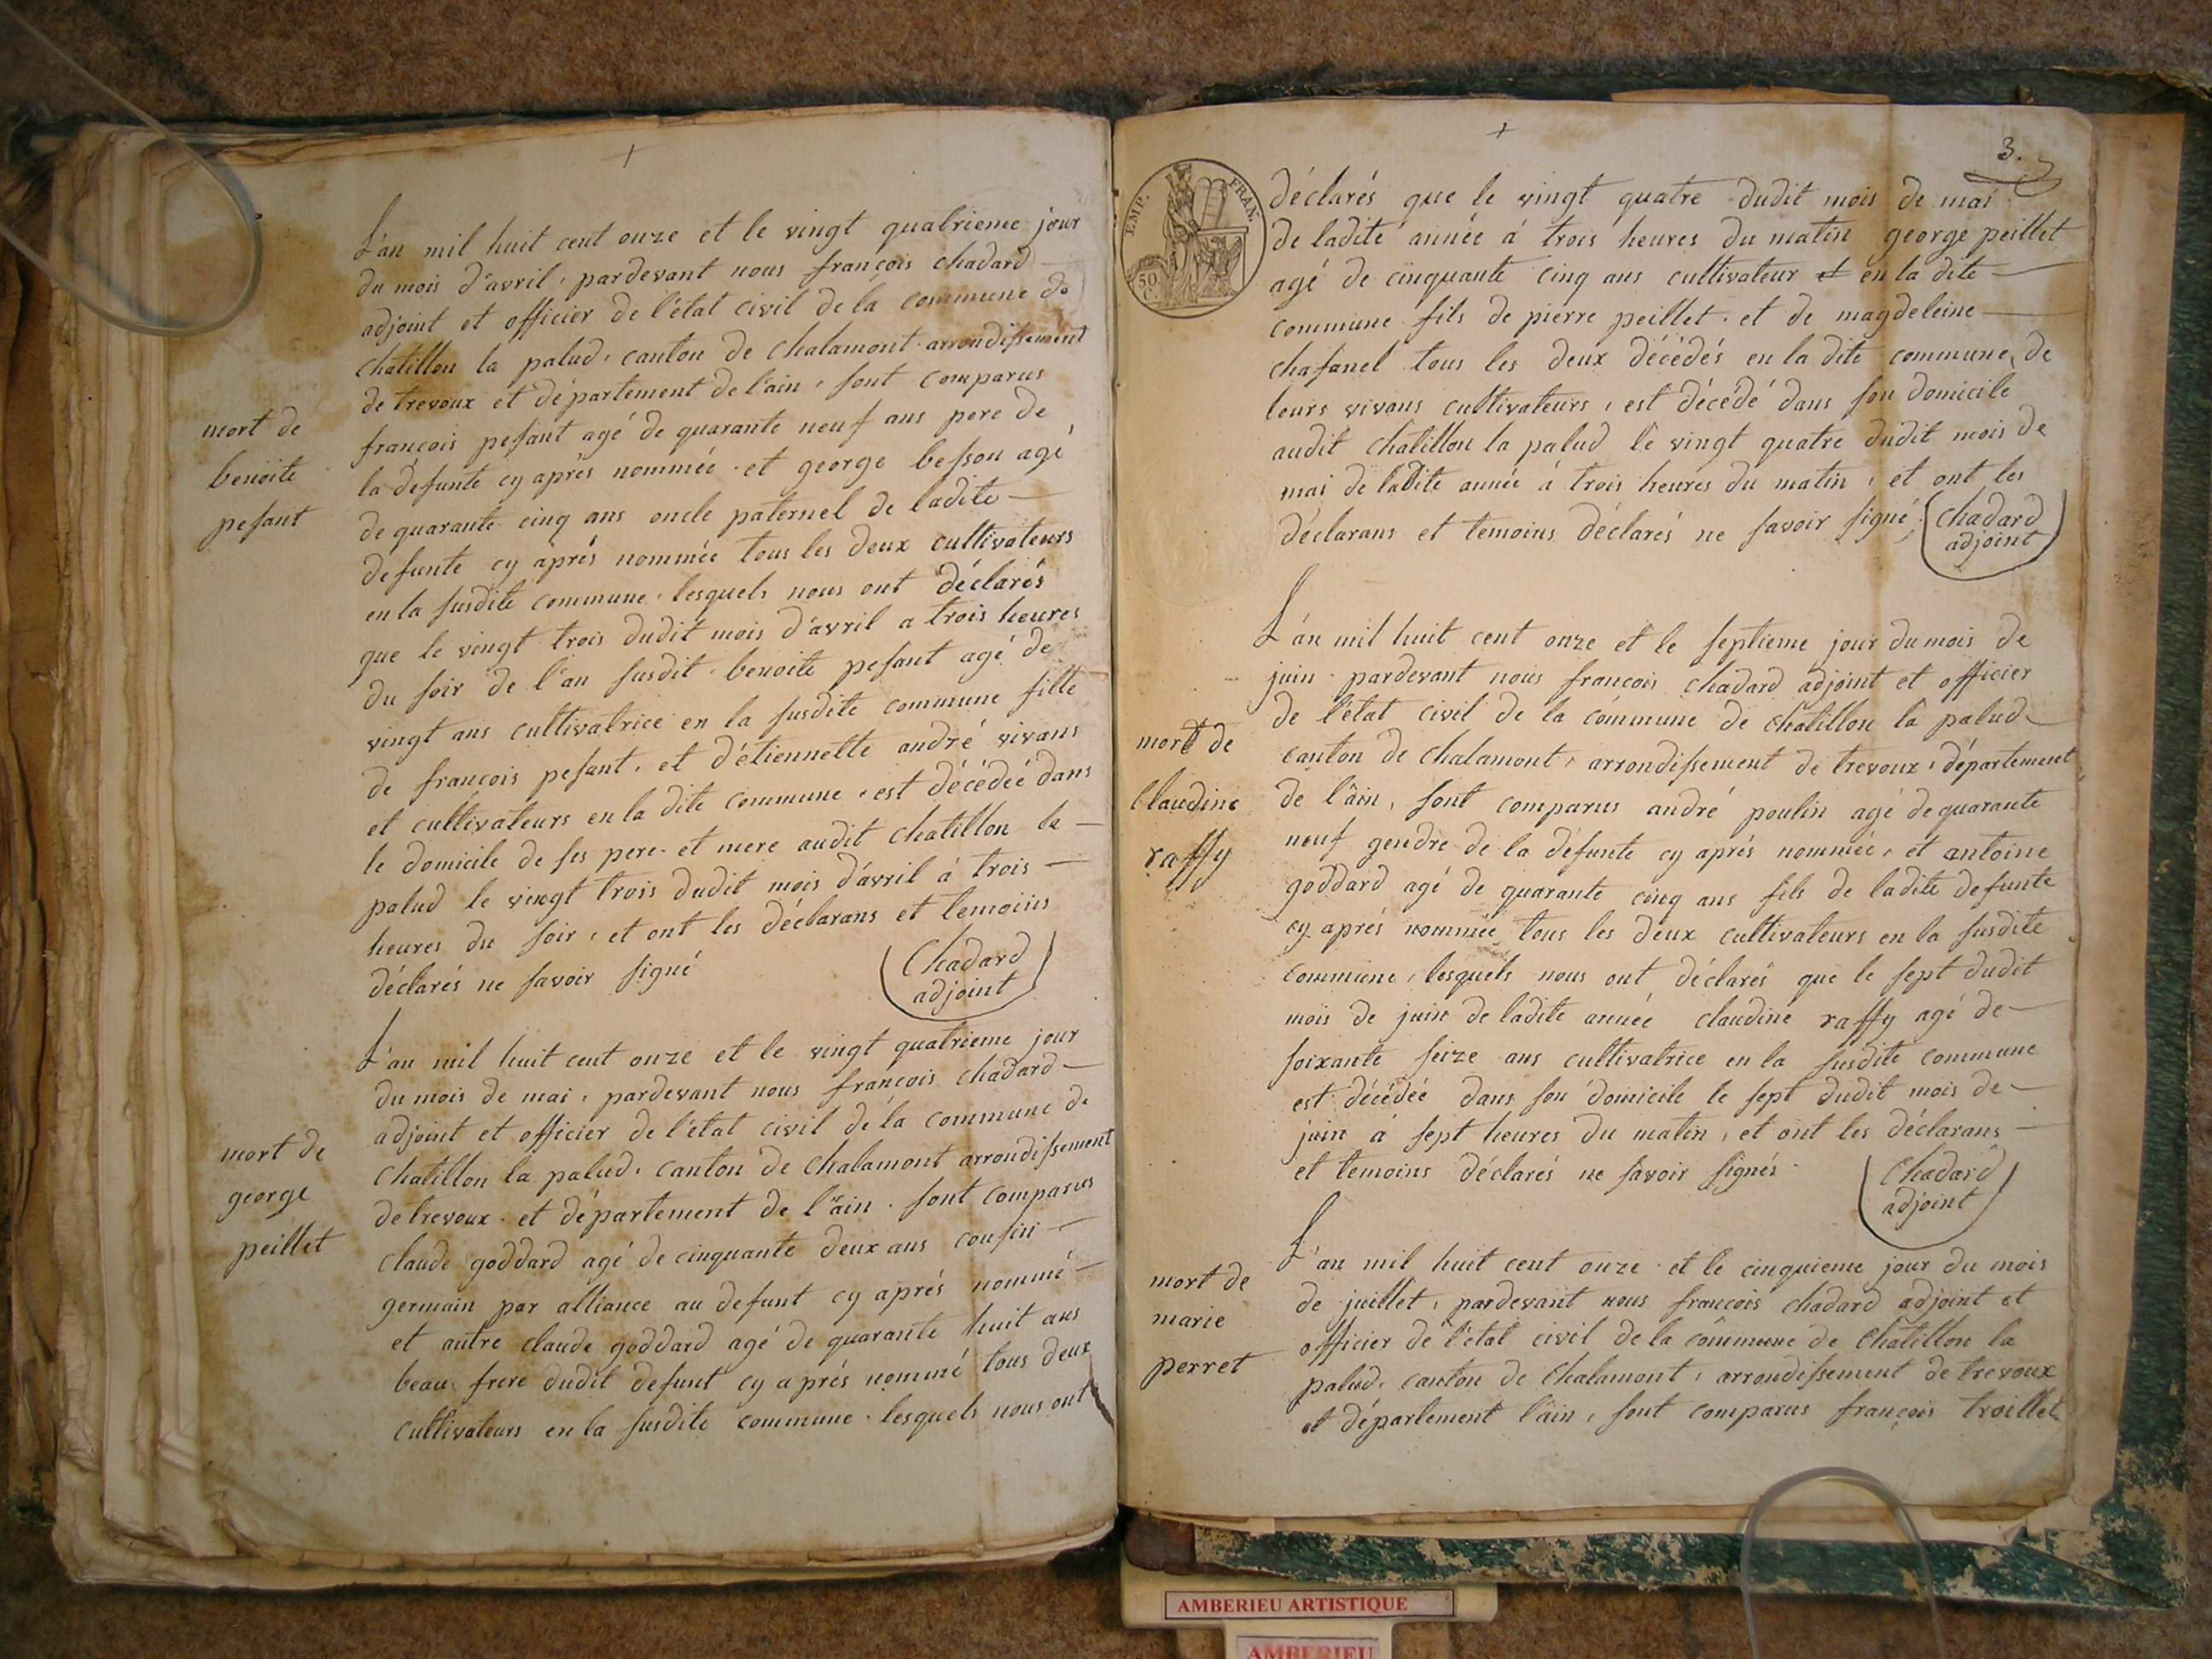 +
L'an mil huit cent onze et le vingt quatrieme jour
du mois d'avril, pardevant nous françois chadard
adjoint et officier de l'état civil de la commune de
chatillon la palud, canton de chalamont arrondissement
de trevoux et département de l'ain, sont comparus
françois pesant agé de quarante neuf ans pere de
la defunte cy aprés nommée et george besson agé
de quarante cinq ans oncle paternel de ladite
defunte cy aprés nommée tous les deux cultivateurs
en la susdite commune, lesquels nous ont déclarés
que le vingt trois dudit mois d'avril a trois heures
du soir de l'an susdit, benoite pesant agé de
vingt ans cultivatrice en la susdite commune fille
de françois pesant, et d'étiennette andré vivans
et cultivateurs en la dite commune, est décédée dans
le domicile de ses pere et mere audit chatillon la
palud le vingt trois dudit mois d'avril à trois
heures du soir, et ont les déclarans et temoins
déclarés ne savoir signé
Chadard
adjoint
mort de
benoite
pesant
L'an mil huit cent onze et le vingt quatrieme jour
du mois de mai, pardevant nous françois chadard
adjoint et officier de l'état civil de la commune de
chatillon la palud, canton de chalamont arrondissement
de trevoux et département de l'ain. sont comparus
claude goddard agé de cinquante deux ans cousin
germain par alliance au defunt cy aprés nommé
et autre claude goddard agé de quarante huit ans
beau frere dudit defunt cy aprés nommé tous deux
cultivateurs en la susdite commune. lesquels nous ont
mort de
george
peillet
+
3.
EMP. FRAN.
50
C.
déclarés que le vingt quatre dudit mois de mai
de ladite année à trois heures du matin george peillet
agé de cinquante cinq ans cultivateur et en la dite
commune fils de pierre peillet, et de magdeleine
chasanel tous les deux décédés en la dite commune, de
leurs vivans cultivateurs, est décédé dans son domicile
audit chatillon la palud le vingt quatre dudit mois de
mai de ladite année à trois heures du matin, et ont les
déclarans et temoins déclarés ne savoir signé,
Chadard
adjoint
L'an mil huit cent onze et le septieme jour du mois de
juin. pardevant nous francois chadard adjoint et officier
de l'état civil de la commune de chatillon la palud
canton de chalamont, arrondissement de trevoux, département
de l'ain, sont comparus andré poulin agé de quarante
neuf gendre de la défunte cy aprés nommée, et antoine
goddard agé de quarante cinq ans fils de ladite defunte
cy aprés nommée tous les deux cultivateurs en la susdite
commune, lesquels nous ont déclarés que le sept dudit
mois de juin de ladite année claudine raffy agé de
soixante seize ans cultivatrice en la susdite commune
est décédée dans son domicile le sept dudit mois de
juin à sept heures du matin, et ont les déclarans
et temoins déclarés ne savoir signés.
Chadard
adjoint
mort de
Claudine
raffy
L'an mil huit cent onze et le cinquieme jour du mois
de juillet, pardevant nous francois chadard adjoint et
officier de l'état civil de la commune de chatillon la
palud, canton de chalamont, arrondissement de trevoux
et département l'ain, sont comparus françois troillet
mort de
marie
perret
AMBERIEU ARTISTIQUE
AMBERIEU